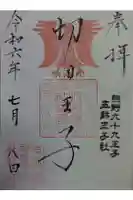 奉拝
切目王子
熊野九十九王子
五躰王子社
令和六年七月八日